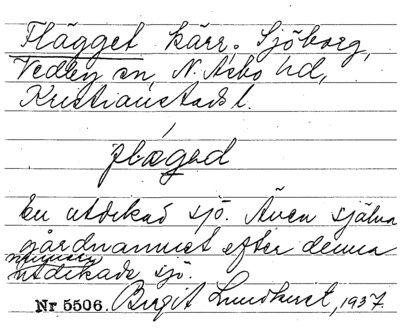 Flägget kärr. Sjöborg,
Vedby sn, N. Åsbo hd,
Kristianstads l.
flægəd
En utdikad sjö. Även själva
gårdnamnet efter denna
numera
utdikade sjö.
Nr 5506. Birgit Lundkvist, 1937.